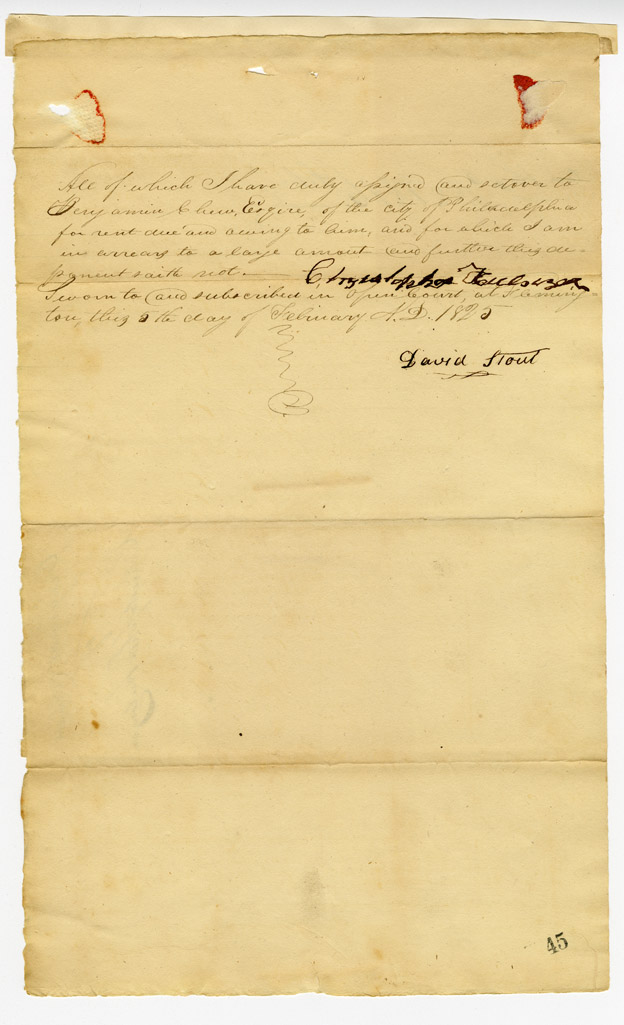 All of which I have duly assigned and setover to
Benjamin Chew, Esqire, of the city of Philadalphia
for rent due and owing to him, and for which I am
in arrears to a large amout and further this de-
ponent saith not. Christopher
Sworn to and subscribed in Open Court, at Fleming-
ton, this 8th day of February A.D. 1825
David Stout
45